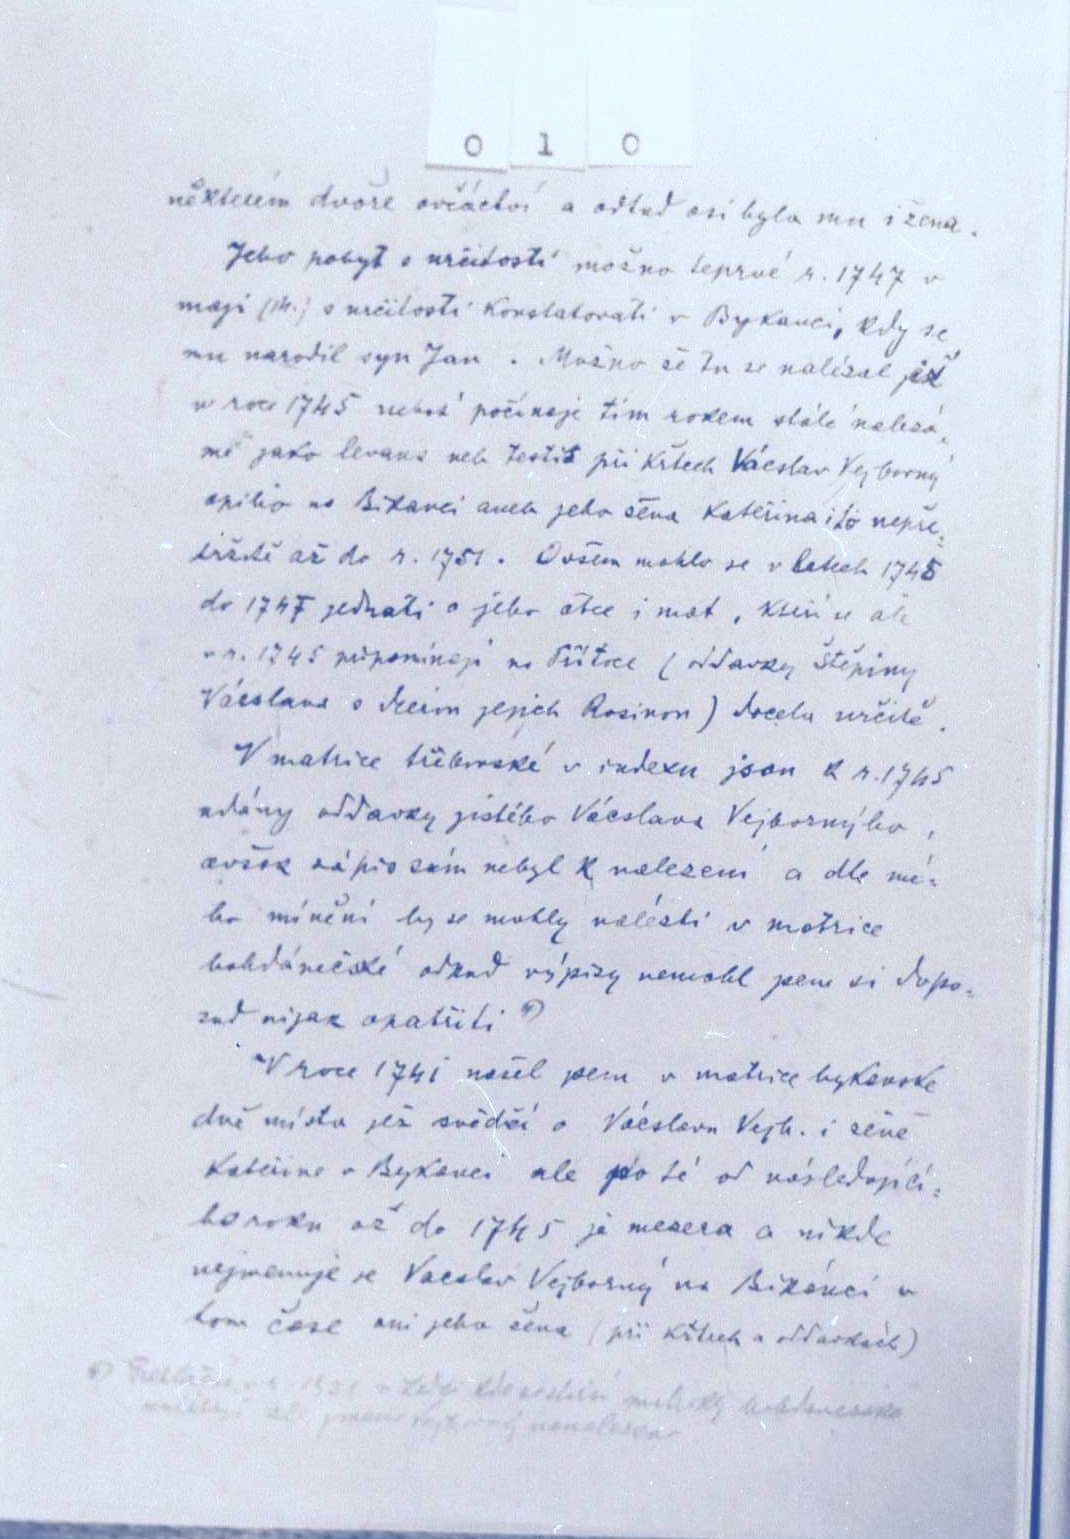 0 1 0
některém dvoře ovčáctví a odtud asi byla mu i žena.
Jeho pobyt s určitostí možno teprvé r. 1747 v
máji (14.) s určitostí konstatovati v Bykanci, kdy se
mu narodil syn Jan. Možno že tu se nalézal již
v roce 1745 neboť počínaje tím rokem stále nalezá-
mě jako levans neb testis při křtech Václav Vejborný
opilio na Bikanci aneb jeho žena Kateřina i to nepře-
tržitě až do r. 1751. Ovšem mohlo se v letech 1745
do 1747 jednati o jeho otce i mat, kteří se ale
v r. 1745 připomínají na (oddavky Štěpiny
Václava s dcerou jejich Rosinou) docela určitě.
V matrice třebovské v indexu jsou k r. 1745
udány oddavky jistého Václava Vejborného,
avšak zápis sám nebyl k nalezení a dle mé-
ho mínění by se mohly nalézti v matrice
bohdánečské odkud výpisy nemohl jsem si dopo-
sud nijak opatřiti *)
V roce 1741 našel jsem v matrice bykanské
dvě místa jež svědčí o Václavu Vejb. i ženě
Kateřine v Bykanci ale po té od následující-
ho roku až do 1745 je mezera a nikde
nejmenuje se Vaclav Vejborný na Bikánci v
tom čase ani jeho žena (při křtech a oddavkách)
*) r. matriky bohdanecské
ale jmeno Vejborný nenalezeno